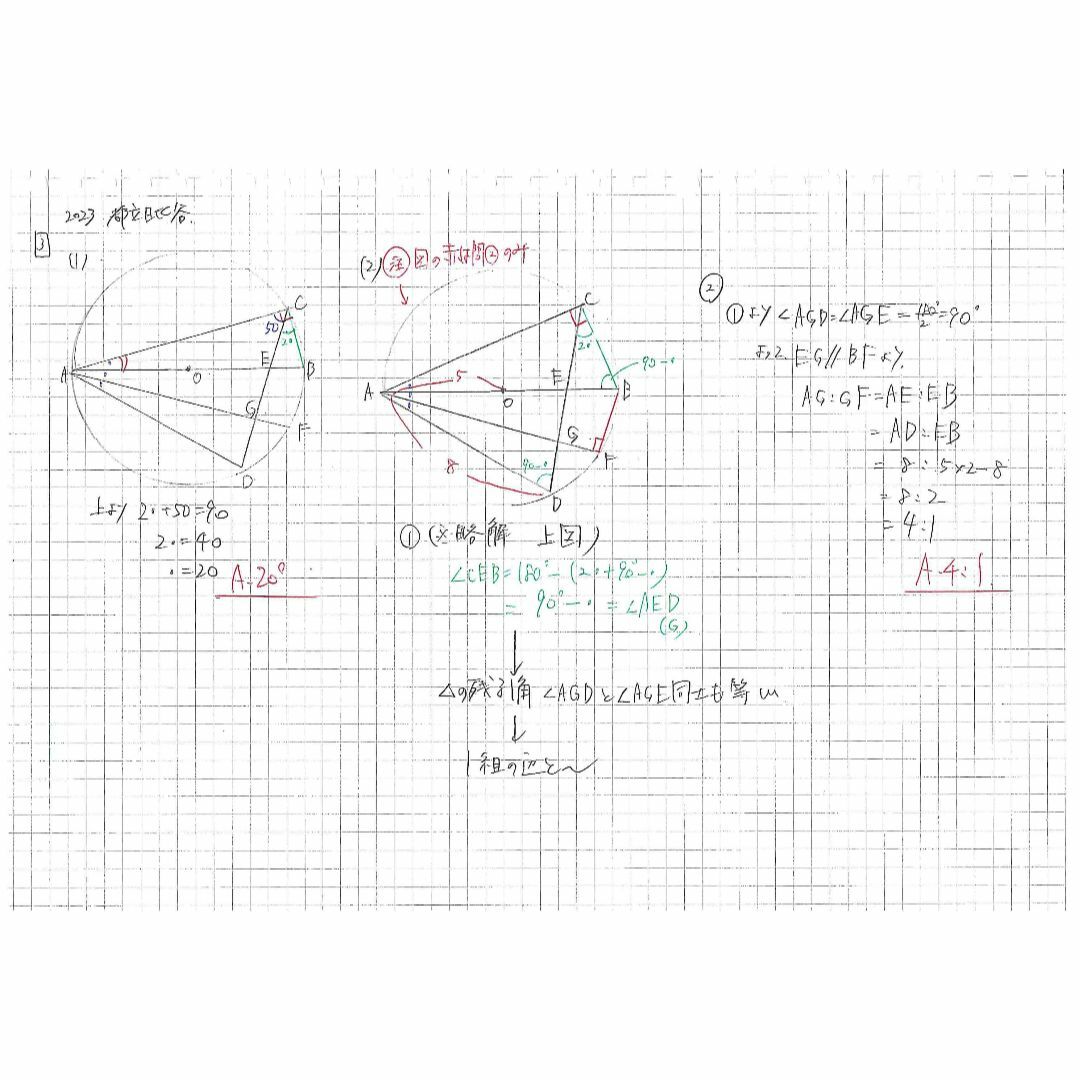 2023 都立日比谷.
3
(1)
A
B
C
D
E
F
G
O
50
2•
上より 2•+50=90
2•=40
•=20
A.20°
(2) 注 図の赤は問②のみ
A
B
C
D
E
F
G
O
5
8
2•
90-•
90-•
① (※略解 上図)
∠CEB=180°-(2•+90°-•)
= 90°-• = ∠AED
(G)
↓
△の残り角 ∠AGDと∠AGE同士も等しい
↓
1組の辺と〜
②
①より ∠AGD=∠AGE=180°/2=90°
よって EG//BFより
AG:GF=AE:EB
=AD:EB
=8:5×2-8
=8:2
=4:1
A.4:1